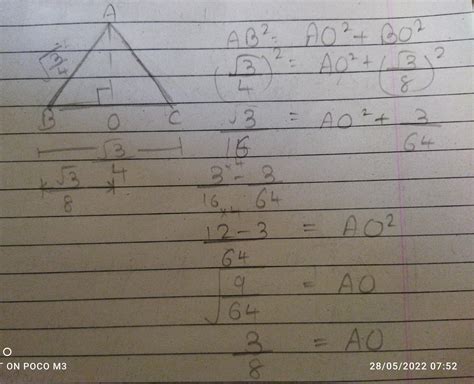 A
√3/4
B O C
√3/4
√3/8
AB² = AO² + BO²
(√3/4)² = AO² + (√3/8)²
√3/16 = AO² + 3/64
3×4/16×4 - 3/64
12-3/64 = AO²
√9/64 = AO
3/8 = AO
T ON POCO M3
28/05/2022 07:52